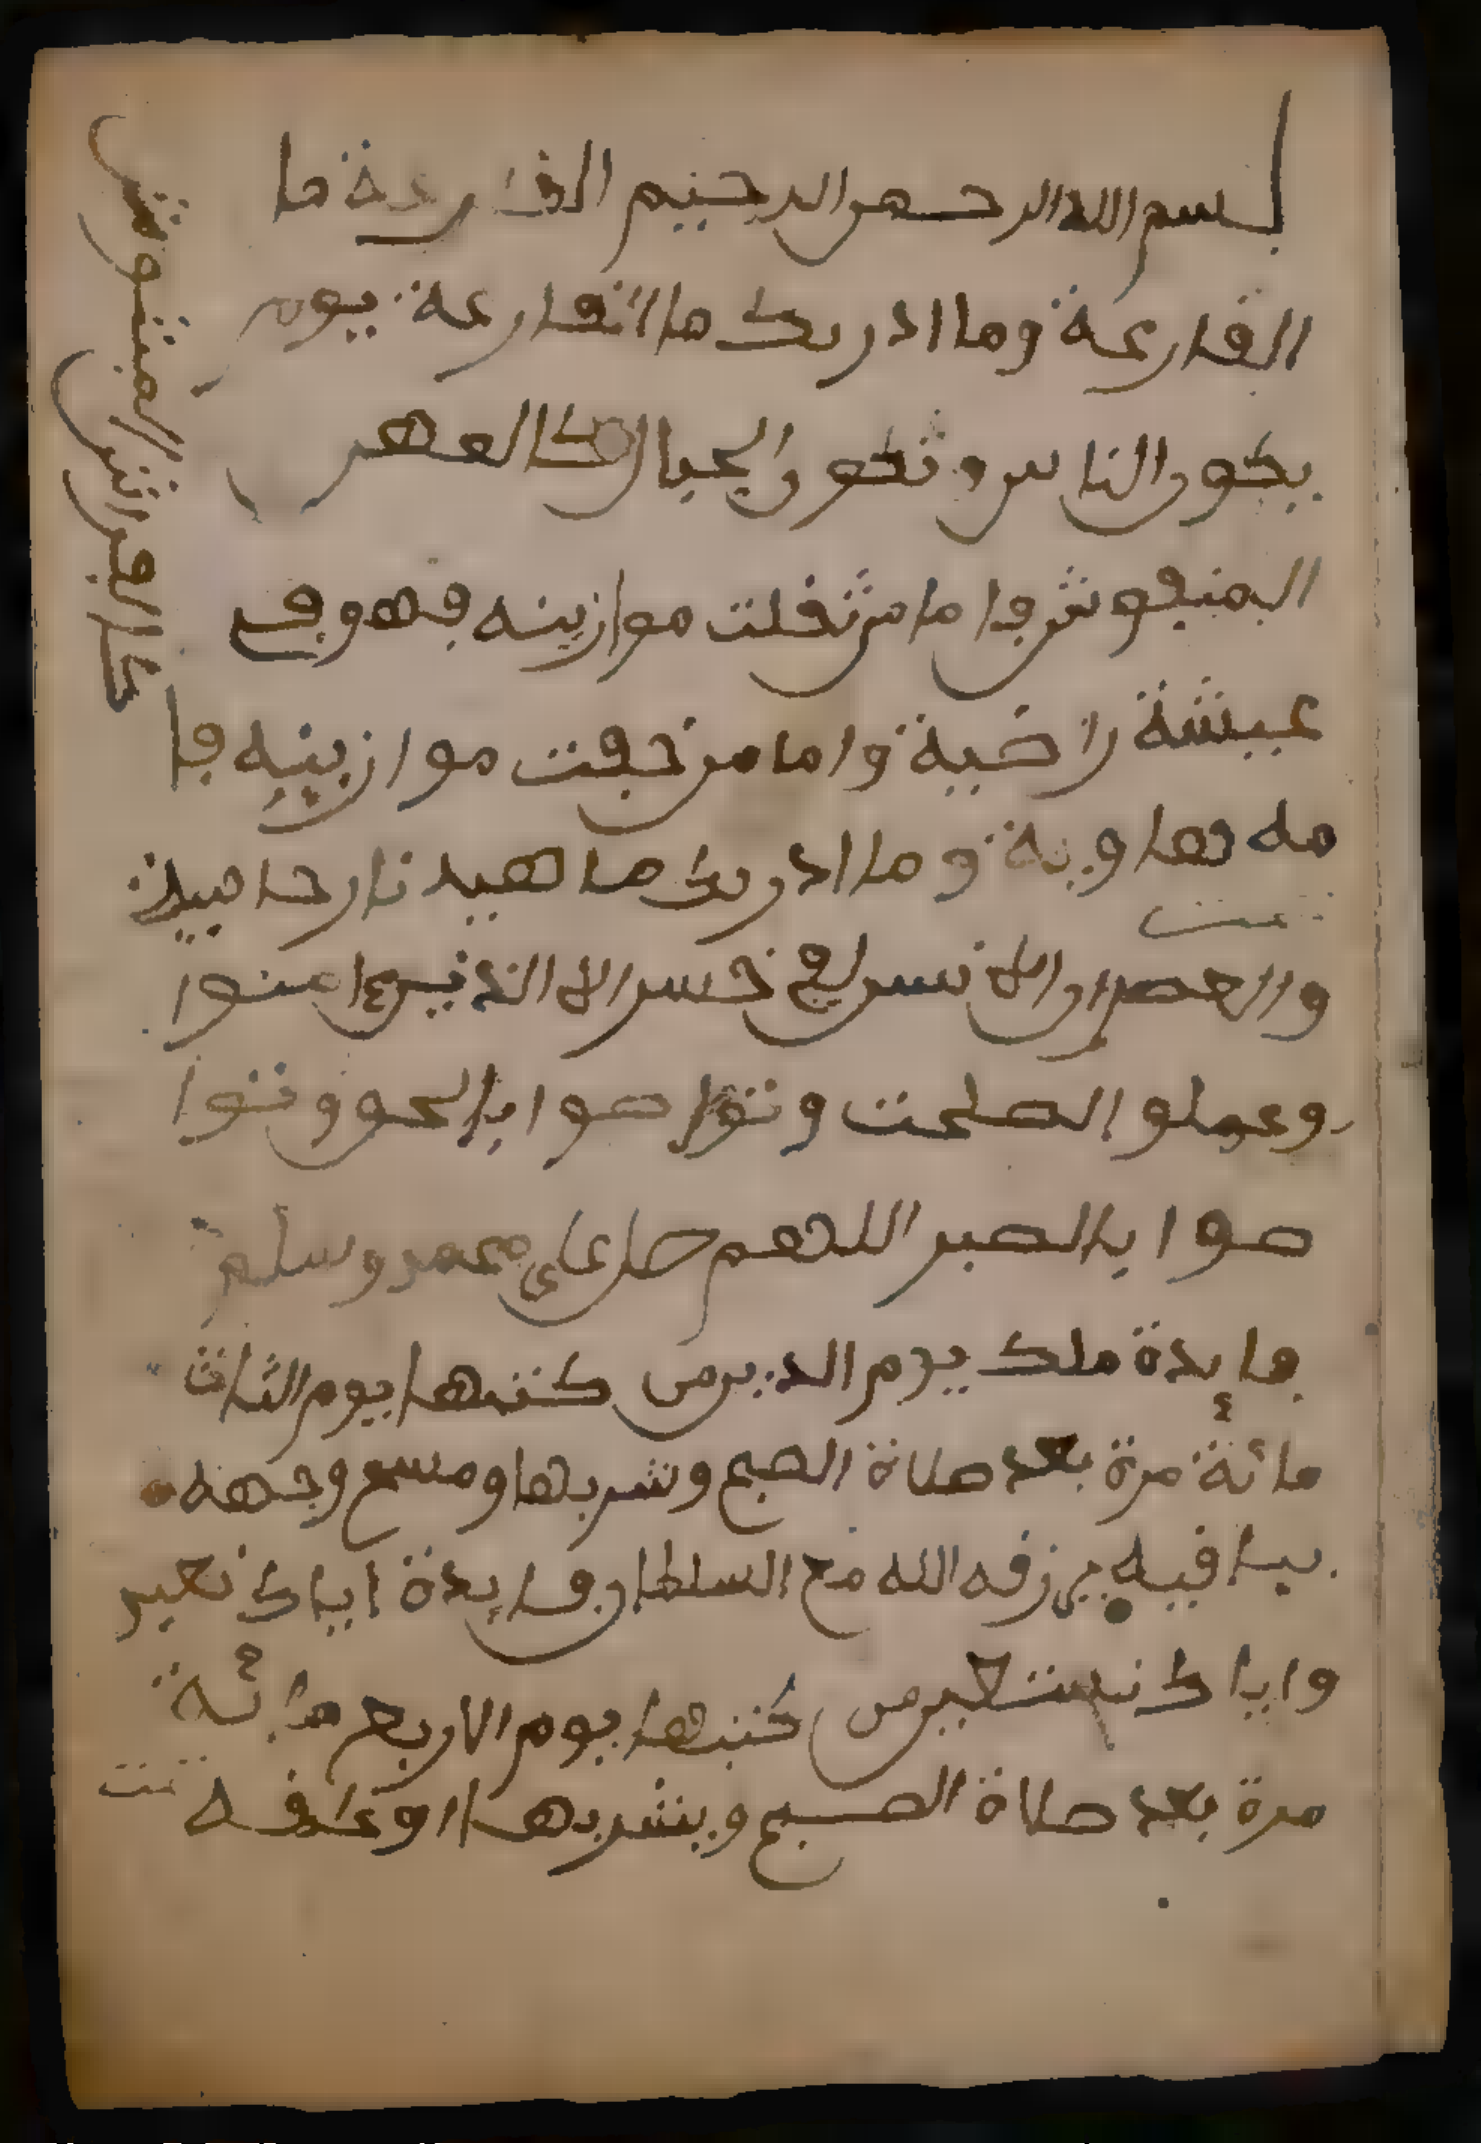 بسم الله الرحمن الرحيم القارعة ما
القارعة وما ادريك ما القارعة يوم
يكون الناس وتكون الجبال كالعهن
كالفراش المبثوث
المنفوش فاما من ثقلت موازينه فهو في
عيشة راضية واما من خفت موازينه فا
مه هاوية وما ادريك ما هيه نار حامية
تمت
والعصر ان الانسن لفي خسر الا الذين ءامنوا
وعملوا الصلحت وتوا صوا بالحق وتوا
صوا بالصبر اللهم صل على محمد وسلم
فايدة ملك يوم الدين من كتبها يوم الثلاث
مائة مرة بعد صلاة الصبح وشربها ومسح وجهه
يرزقه الله مع السلطان فايدة اياك نعبد
واياك نستعين من كتبها يوم الاربع مائة
مرة بعد صلاة الصبح ويشربها تمت